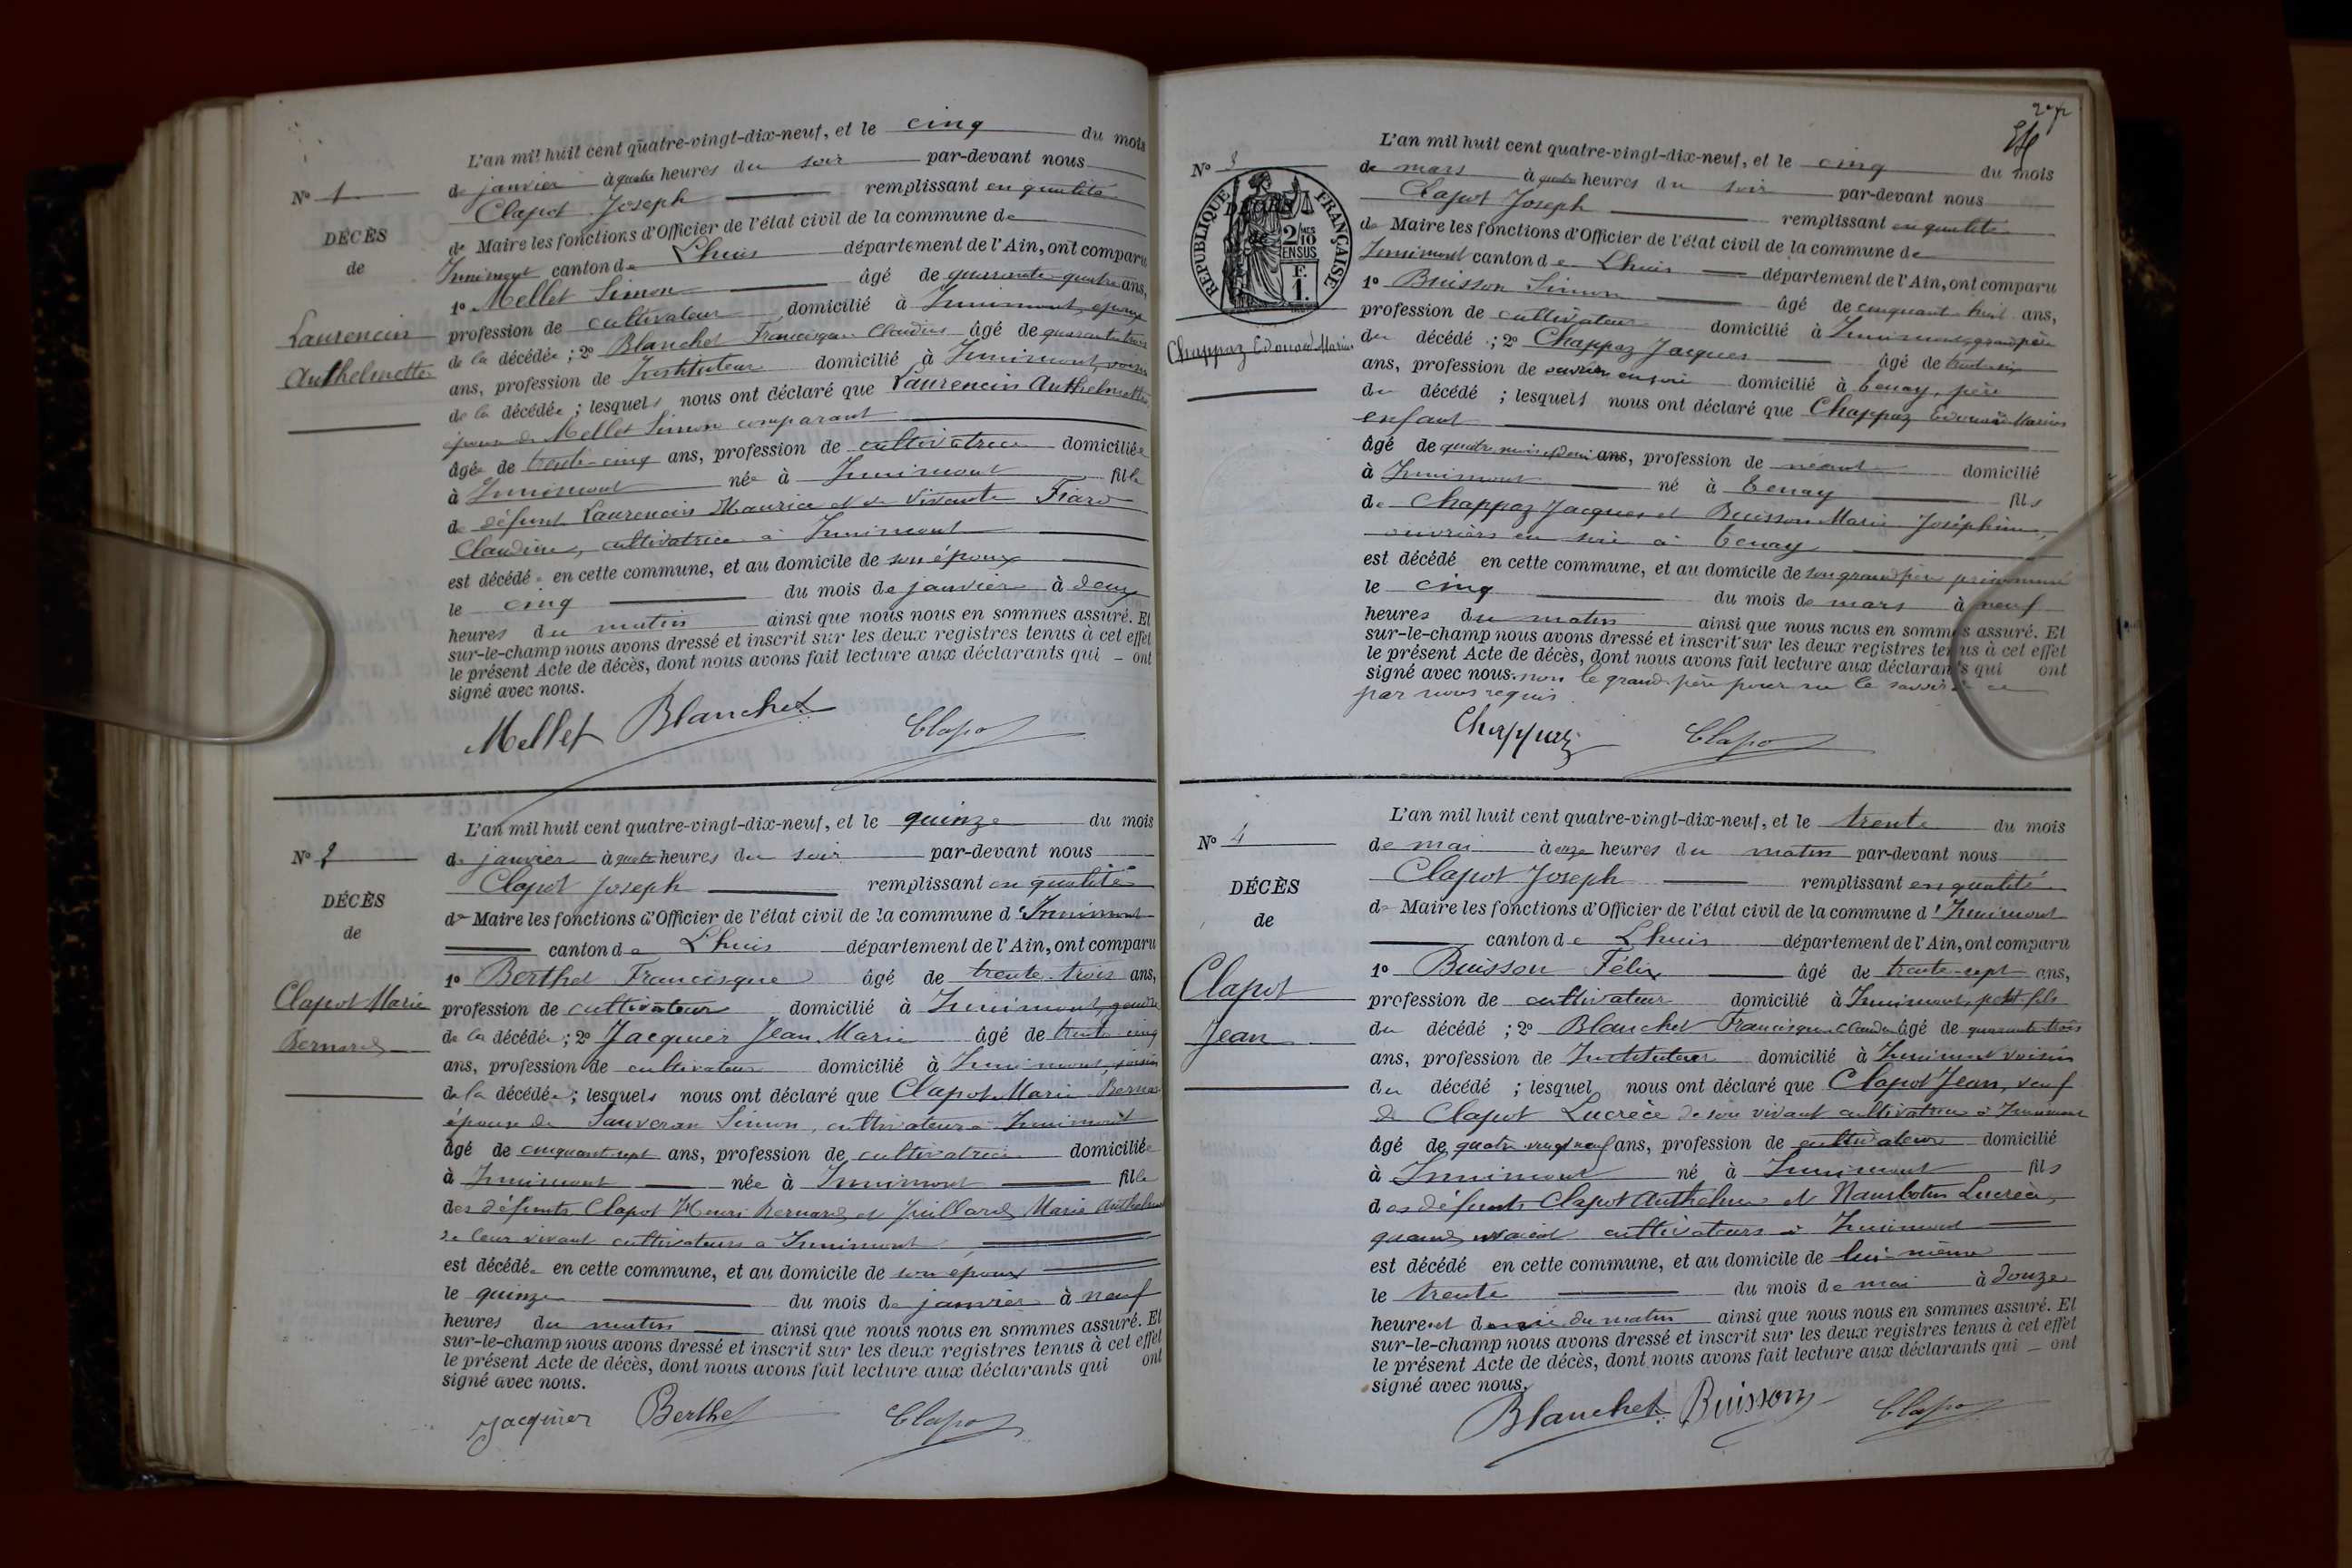 L'an mil huit cent quatre-vingt-dix-neuf, et le cinq du mois
de janvier à quatre heures du soir par-devant nous
Clapot Joseph remplissant en qualité
de Maire les fonctions d'Officier de l'état civil de la commune de
Innimont canton de Lhuis département de l'Ain, ont comparu
1º Mellet Simon âgé de quarante quatre ans,
profession de cultivateur domicilié à Innimont, époux
de la décédée ; 2º Blanchet Francisque Claudius âgé de quarante trois
ans, profession de Instituteur domicilié à Innimont, voisin
de la décédée ; lesquels nous ont déclaré que Laurencin Anthelmette
épouse de Mellet Simon comparant
âgée de trente-cinq ans, profession de cultivatrice domiciliée
à Innimont née à Innimont fille
de défunt Laurencin Maurice et de vivante Fiard
Claudine, cultivatrice à Innimont
est décédée en cette commune, et au domicile de son époux
le cinq du mois de janvier à deux
heures du matin ainsi que nous nous en sommes assuré. Et
sur-le-champ nous avons dressé et inscrit sur les deux registres tenus à cet effet
le présent Acte de décès, dont nous avons fait lecture aux déclarants qui ont
signé avec nous.
Mellet Blanchet Clapot
Nº 1
DÉCÈS
de
Laurencin
Anthelmette
L'an mil huit cent quatre-vingt-dix-neuf, et le quinze du mois
de janvier à quatre heures du soir par-devant nous
Clapot Joseph remplissant en qualité
de Maire les fonctions d'Officier de l'état civil de la commune d'Innimont
canton de Lhuis département de l'Ain, ont comparu
1º Berthet Francisque âgé de trente-trois ans,
profession de cultivateur domicilié à Innimont, gendre
de la décédée ; 2º Jacquier Jean Marie âgé de trente cinq
ans, profession de cultivateur domicilié à Innimont, voisin
de la décédée ; lesquels nous ont déclaré que Clapot Marie Bernard
épouse de Sauveran Simon, cultivateur à Innimont
âgé de cinquante-sept ans, profession de cultivatrice domiciliée
à Innimont née à Innimont fille
des défunts Clapot Henri Bernard et Juillard Marie
de leur vivant cultivateurs à Innimont
est décédée en cette commune, et au domicile de son époux
le quinze du mois de janvier à neuf
heures du matin ainsi que nous nous en sommes assuré. Et
sur-le-champ nous avons dressé et inscrit sur les deux registres tenus à cet effet
le présent Acte de décès, dont nous avons fait lecture aux déclarants qui ont
signé avec nous.
Jacquier Berthet Clapot
Nº 2
DÉCÈS
de
Clapot Marie
Bernard
L'an mil huit cent quatre-vingt-dix-neuf, et le cinq du mois
de mars à quatre heures du soir par-devant nous
Clapot Joseph remplissant en qualité
de Maire les fonctions d'Officier de l'état civil de la commune de
Innimont canton de Lhuis département de l'Ain, ont comparu
1º Buisson Simon âgé de cinquante huit ans,
profession de cultivateur domicilié à Innimont, grand père
du décédé ; 2º Chappaz Jacques âgé de trente six
ans, profession de ouvrier en soie domicilié à Tenay, père
du décédé ; lesquels nous ont déclaré que Chappaz Edouard Marius
enfant
âgé de quatre mois et demi ans, profession de néant domicilié
à Innimont né à Tenay fils
de Chappaz Jacques et Buisson Marie Joséphine,
ouvriers en soie à Tenay
est décédé en cette commune, et au domicile de son grand père prénommé
le cinq du mois de mars à neuf
heures du matin ainsi que nous nous en sommes assuré. Et
sur-le-champ nous avons dressé et inscrit sur les deux registres tenus à cet effet
le présent Acte de décès, dont nous avons fait lecture aux déclarants qui ont
signé avec nous. non le grand père pour ne le savoir de ce
par nous requis
Chappaz Clapot
Nº 3
DÉCÈS
RÉPUBLIQUE FRANÇAISE
2/10 EN SUS
F.
1.
Chappaz Edouard Marius
L'an mil huit cent quatre-vingt-dix-neuf, et le trente du mois
de mai à onze heures du matin par-devant nous
Clapot Joseph remplissant en qualité
de Maire les fonctions d'Officier de l'état civil de la commune d'Innimont
canton de Lhuis département de l'Ain, ont comparu
1º Buisson Félix âgé de trente-sept ans,
profession de cultivateur domicilié à Innimont, petit-fils
du décédé ; 2º Blanchet Francisque Claudius âgé de quarante-trois
ans, profession de Instituteur domicilié à Innimont voisin
du décédé ; lesquel nous ont déclaré que Clapot Jean, veuf
de Clapot Lucrèce de son vivant cultivatrice à Innimont
âgé de quatre-vingt neuf ans, profession de cultivateur domicilié
à Innimont né à Innimont fils
des défunts Clapot Anthelme et Nambotin Lucrèce,
quand vivaient cultivateurs à Innimont
est décédé en cette commune, et au domicile de lui-même
le trente du mois de mai à douze
heures et demie du matin ainsi que nous nous en sommes assuré. Et
sur-le-champ nous avons dressé et inscrit sur les deux registres tenus à cet effet
le présent Acte de décès, dont nous avons fait lecture aux déclarants qui ont
signé avec nous.
Blanchet Buisson Clapot
Nº 4
DÉCÈS
de
Clapot
Jean